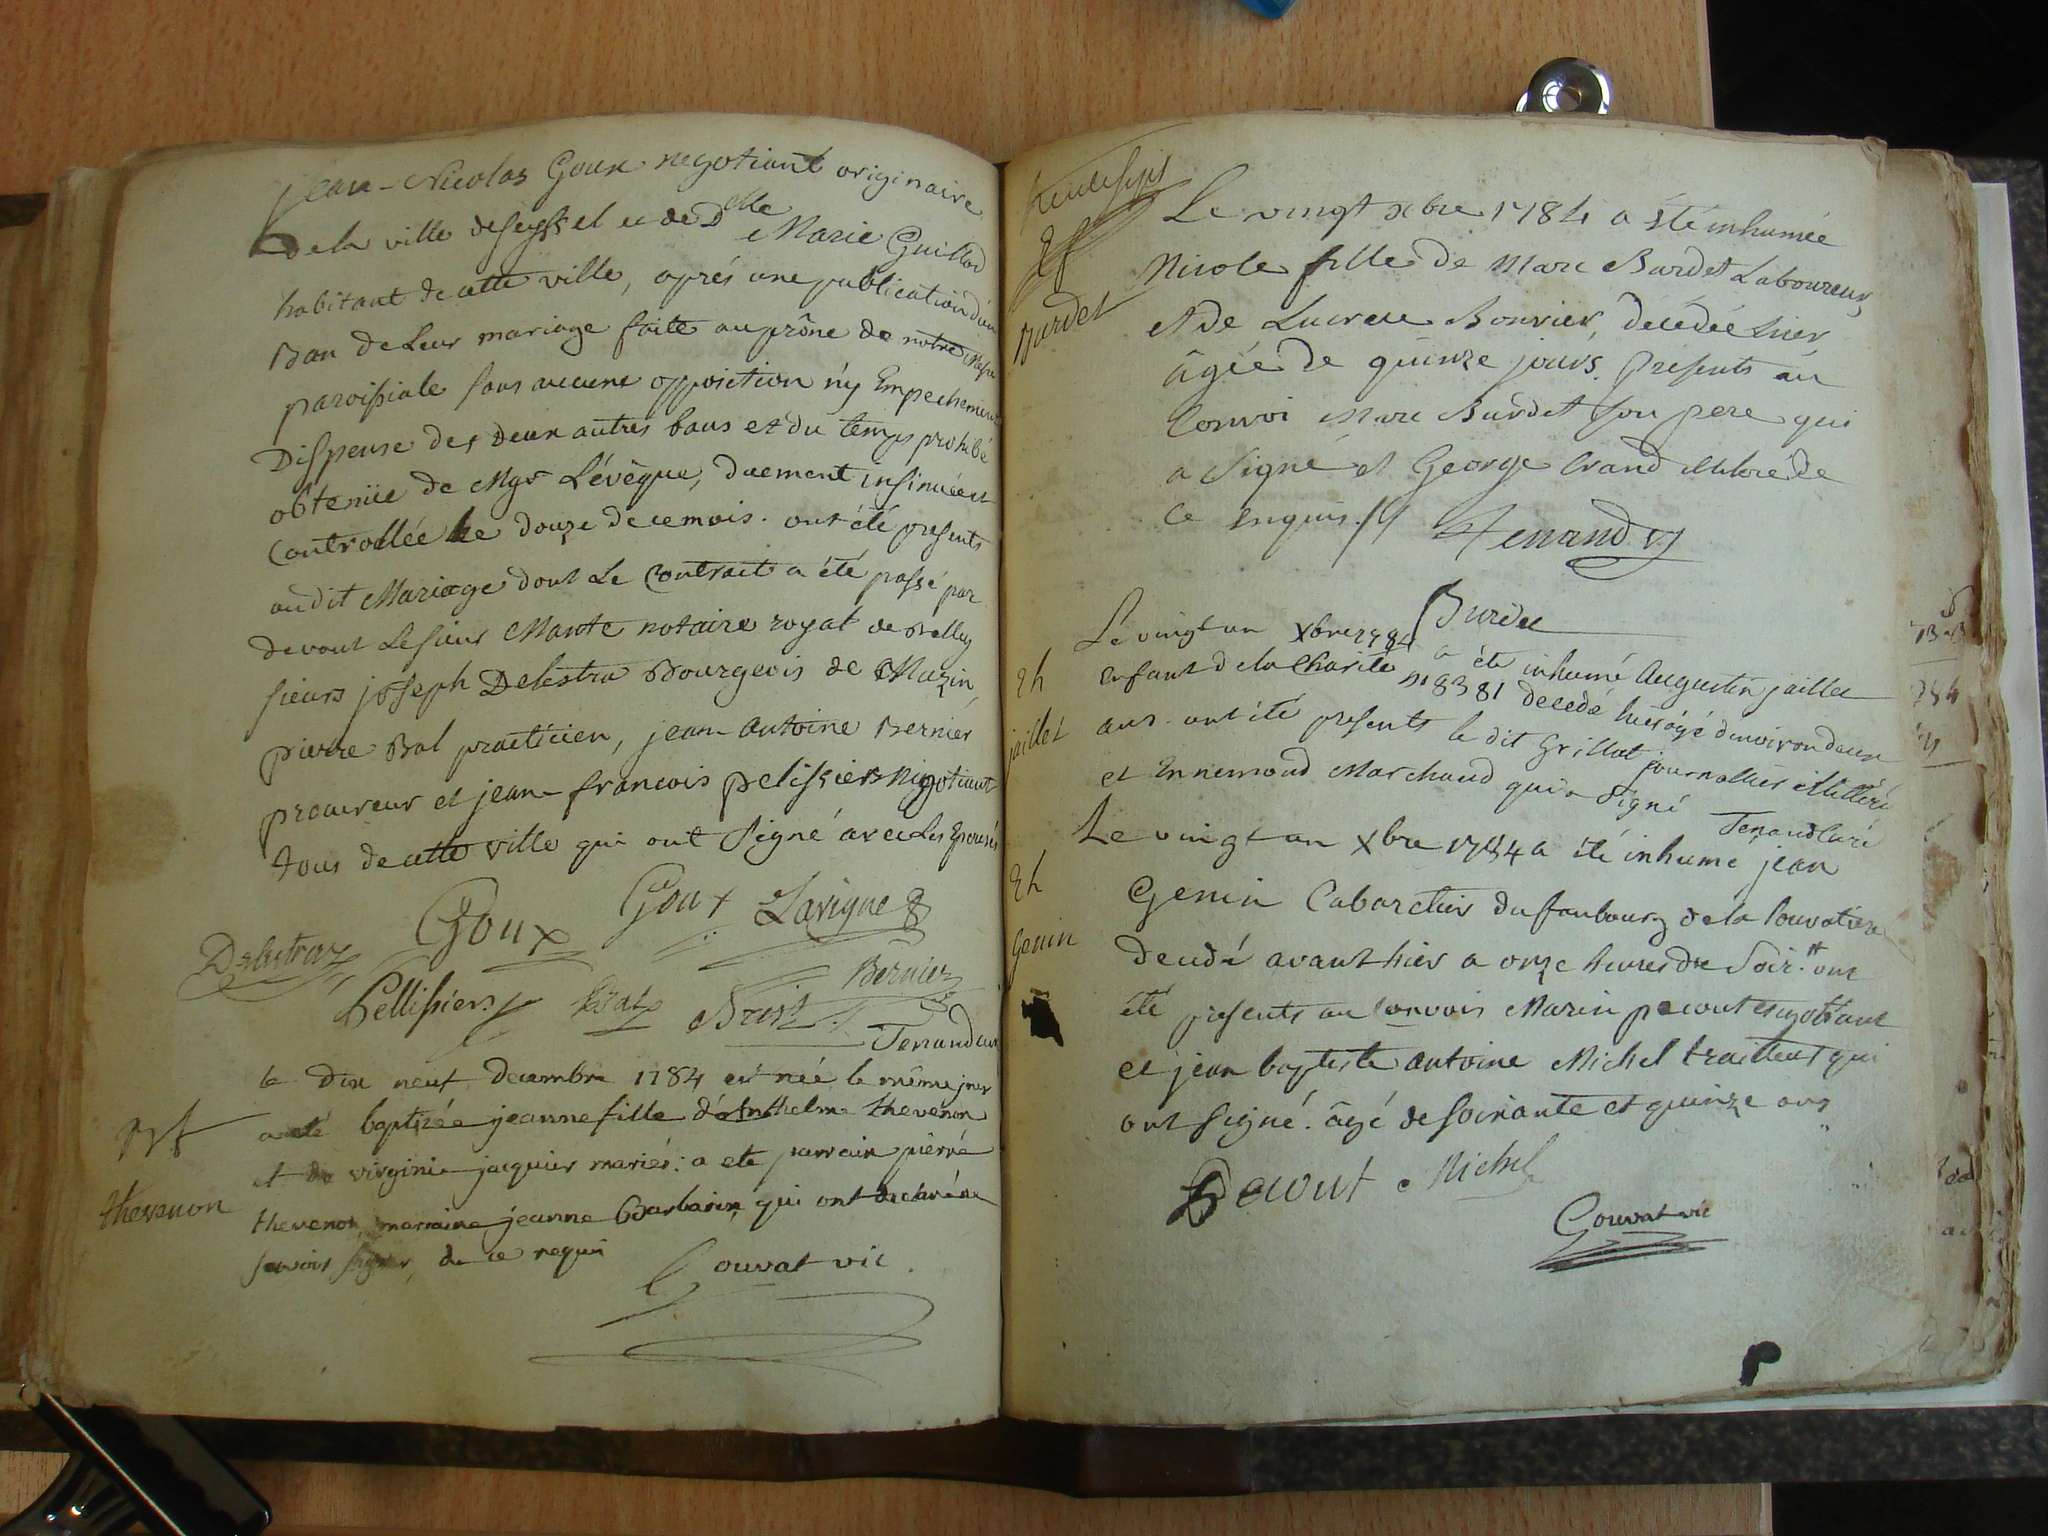 Jean-Nicolas Goux negotiant originaire
de la ville de seyssel et de Dlle Marie Guillod
habitant de cette ville, aprés une publication d'un
Ban de leur mariage faite au prône de notre Messe
paroissiale sans aucune opposition n'y Empechement
Dispense des deux autres bans et du temps prohibé
obtenüe de Mgr L'évêque, duement insinuée et
Controllée le douze de ce mois. ont été presents
au dit Mariage dont le Contrait a été passé par
devant le sieur Mante notaire royal de Belley
sieurs joseph Delestra Bourgeois de Muzin
pierre Bal practicien, jean Antoine Bernier
procureur et jean françois pelissier Nigotiant
tous de cette ville qui ont Signé avec les Epousés
Goux Goux Lavigne
Delestraz Bernier
Pellissier Bal Brist
Tenand curé
le dix neuf decembre 1784 est née le même jour
a eté baptizée jeanne fille d'Anthelme thevenon
et de virginie jacquier mariés: a eté parrain pierre
thevenon, marraine jeanne Barbarin, qui ont declaré ne
savoir signer, de ce requi
Gouvat vic.
Bt
thevenon
Le vingt xbre 1784 a été inhumée
Nicole fille de Marc Burdet Laboureur
et de Lucrece Bonvier, décédée hier
âgée de quinze jours. Presents au
Convoi Marc Burdet son pere qui
a Signé et George Crand illitéré de
ce enquis.
Tenand
Burdet
Sf
Burdet
Le vingt un xbre 1784 a été inhumé Augustin jaillet
enfant de la Charité n° 8381 decedé hier âgé d'environ deux
ans. ont été presents le dit Grillat journallier illitéré
et Ennemond Marchand qui a Signé Tenand Curé
Sh
jaillet
Le vingt un xbre 1784 a été inhumé jean
Genin Cabaretier du faubourg de la
decedé avant hier a onze heures du Soir. ont
été presents au convois Marin pecout negotiant
et jean baptiste antoine Michel trailleur qui
ont signé. âgé de soixante et quinze ans
Sh
Genin
Pecout Michel
Gouvat vic